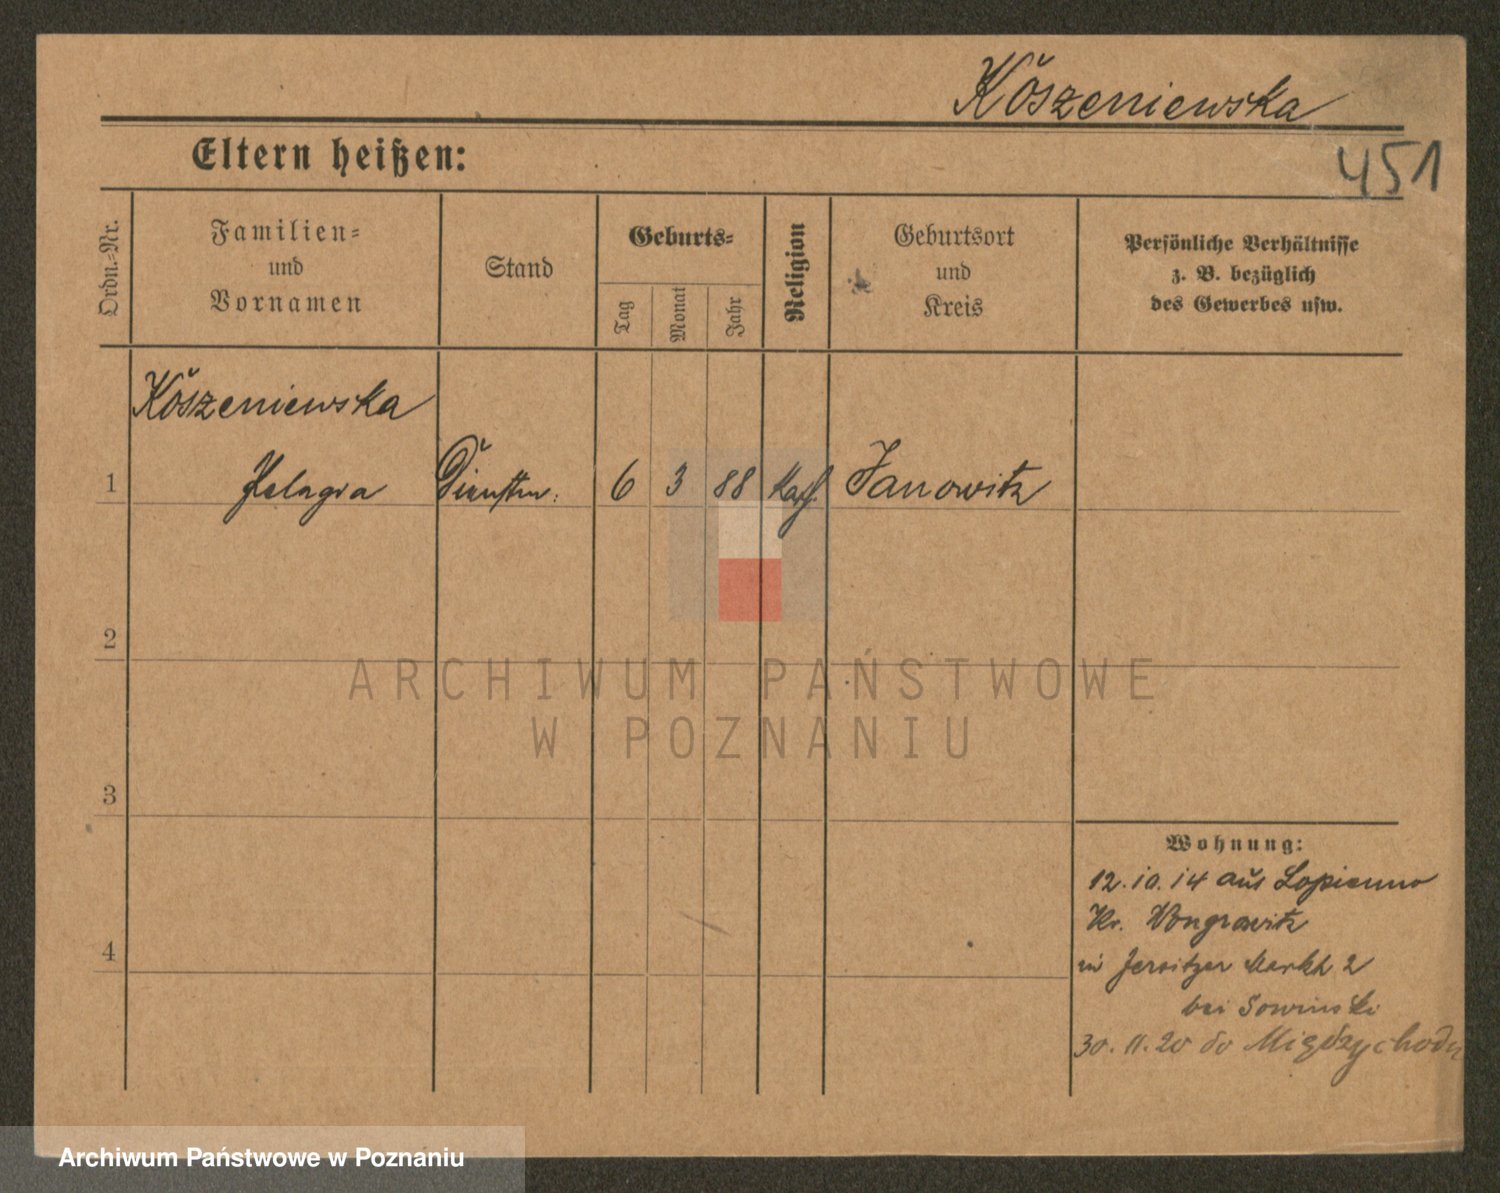 Koszeniewska
451
Eltern heißen:
Ordn.-Nr.
Familien-
und
Vornamen
Stand
Geburts-
Tag
Monat
Jahr
Religion
Geburtsort
und
Kreis
Persönliche Verhältnisse
z. B. bezüglich
des Gewerbes usw.
Koszeniewska
1 Pelagia Dienstm. 6 3 88 kath. Janowitz
2
3
4
Wohnung:
12.10.14 aus Lopienno
Kr. Wongrowitz
in Jersitzer Markt 2
bei Sowinski
30.11.20 do Międzychodu
ARCHIWUM PAŃSTWOWE
W POZNANIU
Archiwum Państwowe w Poznaniu